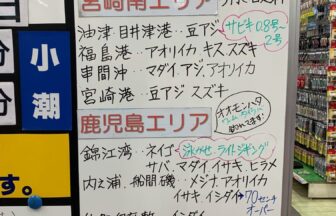 宮崎南エリア
油津・目井津港‥豆アジ
サビキ0.8号
2号
福島港‥アオリイカ キス スズキ
串間沖‥マダイ、アジ、アオリイカ
宮崎港‥豆アジ スズキ
鹿児島エリア
オオモンハタ
釣れてます!
錦江湾‥ネイゴ
泳がせ、ライトジギング
サバ マダイ イサキ ヒラメ
内之浦、
磯‥メジナ、アオリイカ
イサキ、イシダイ→70センチ
オーバー
イシダイ
小潮
分
分
す。